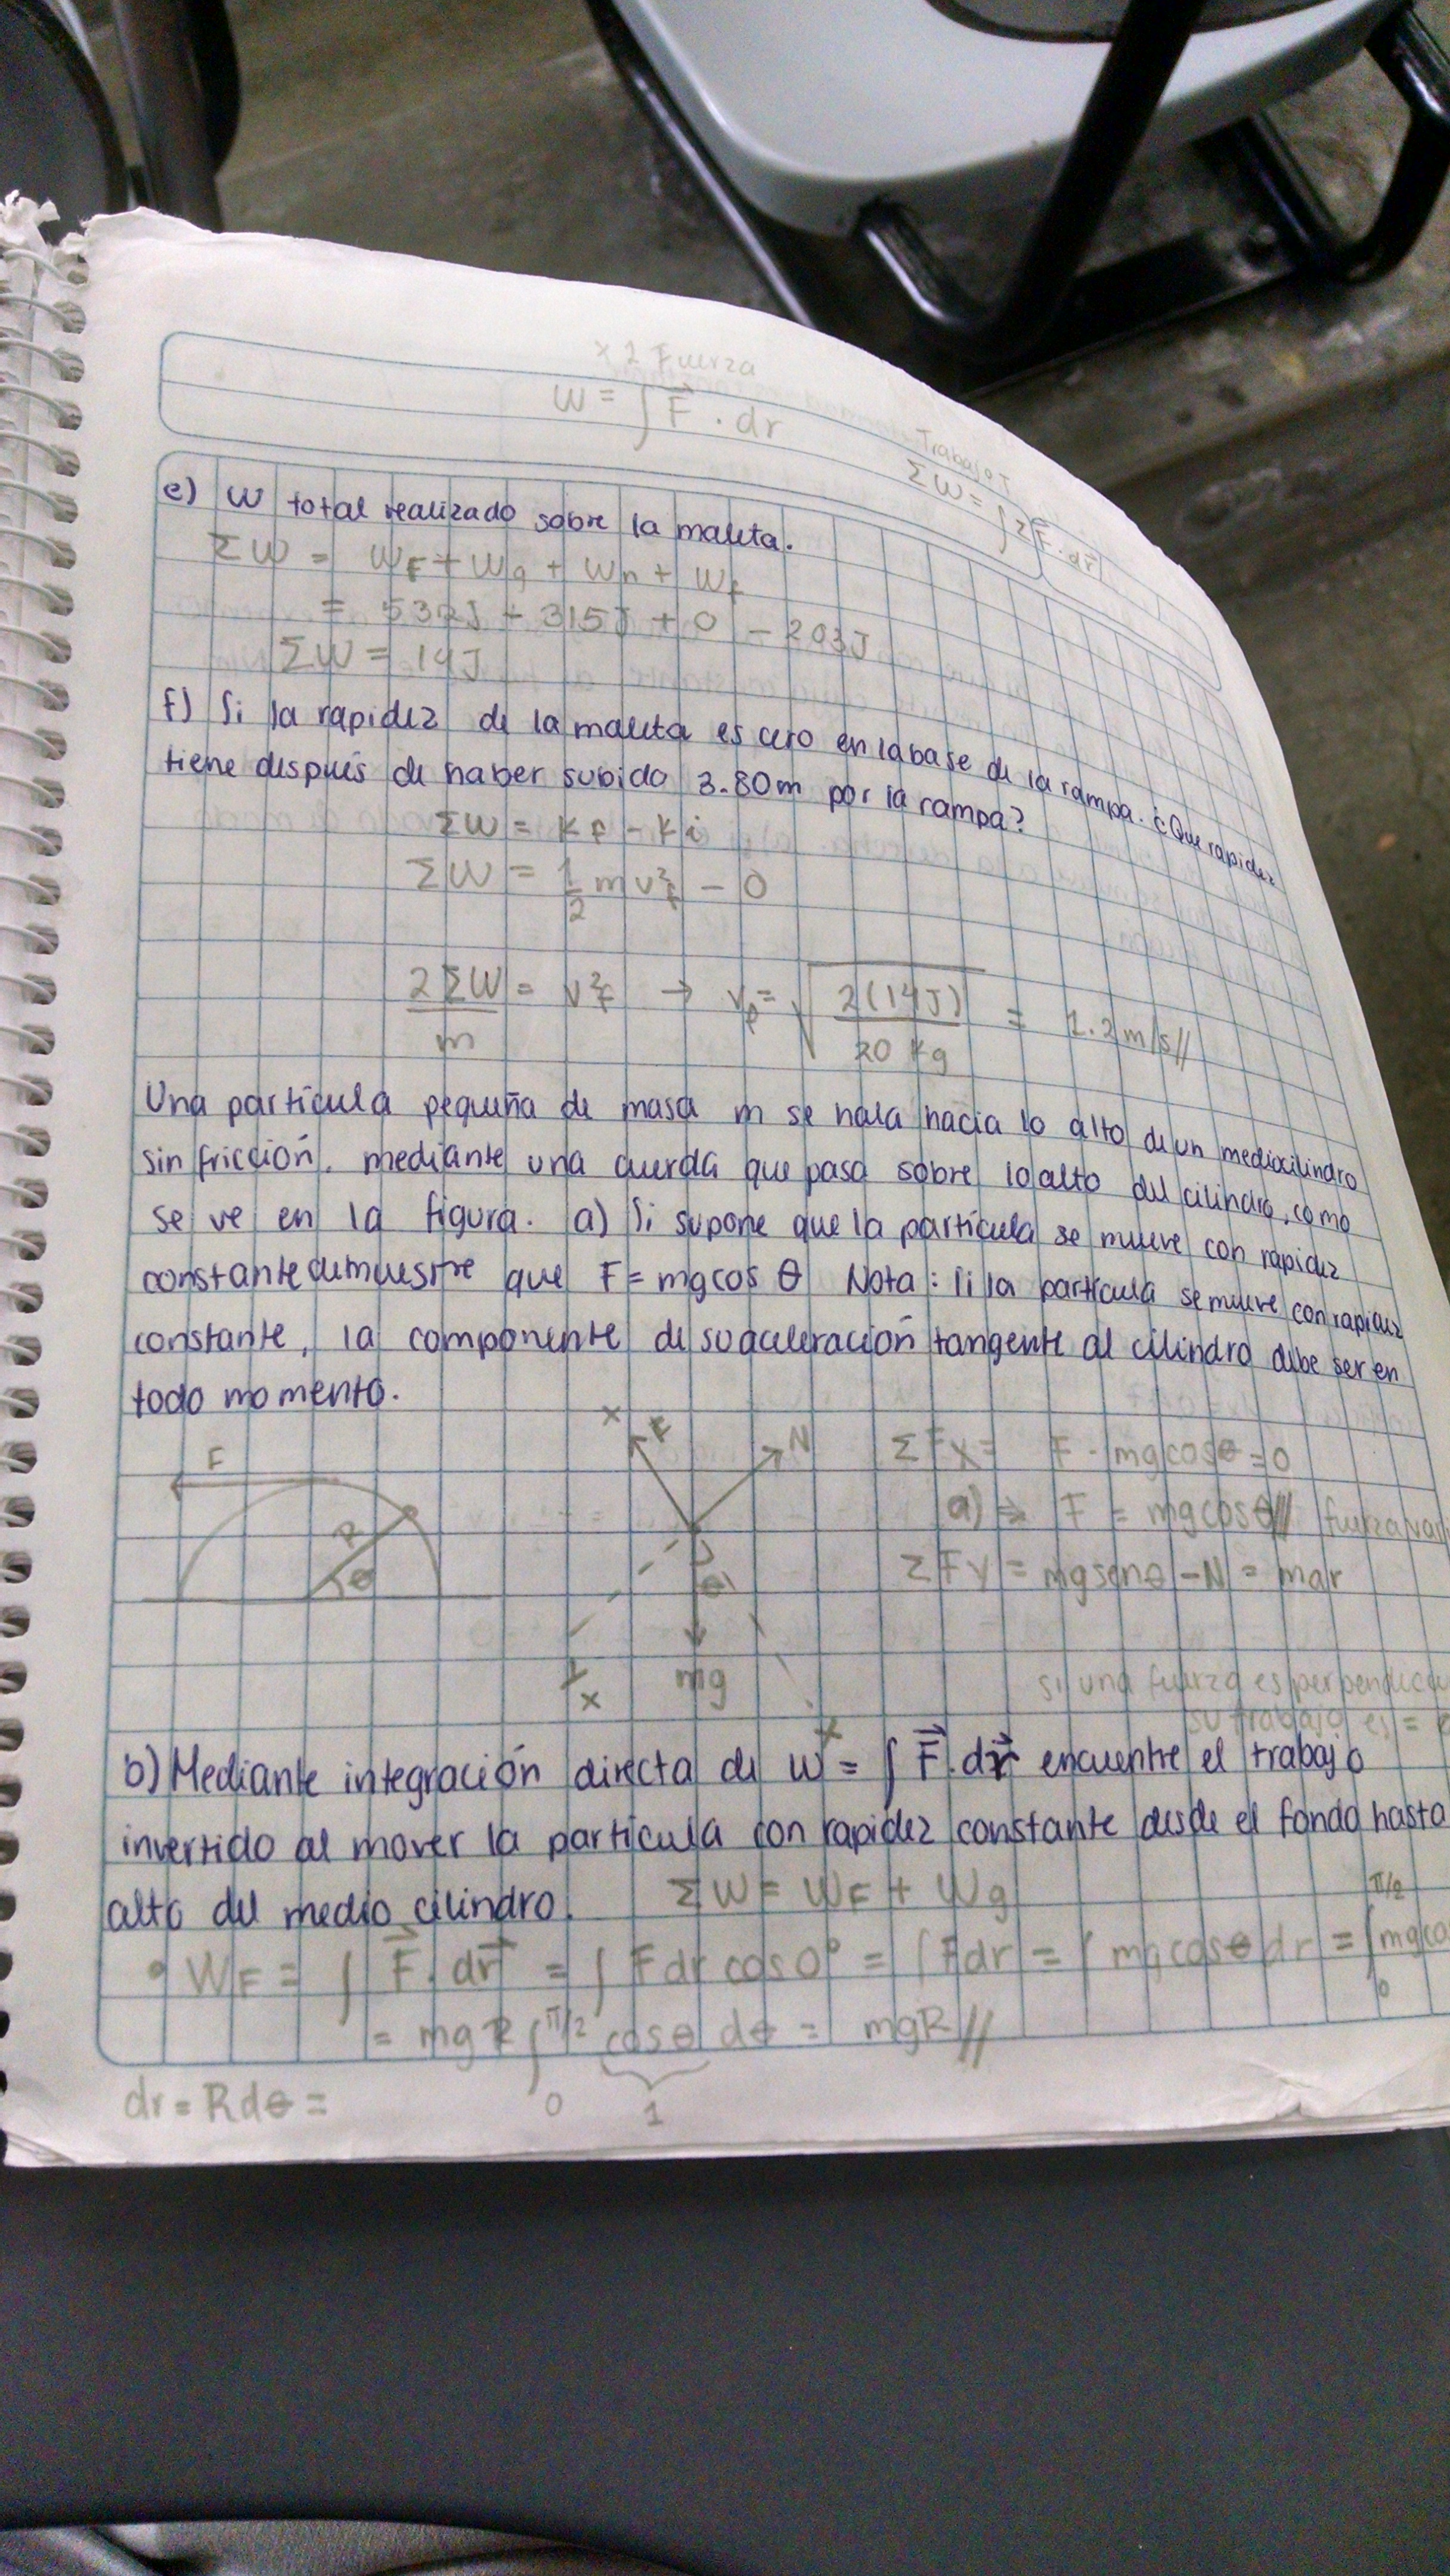 x 2 Fuerza
W = ∫ F⃗ · dr
Trabajo T
ΣW = ∫ΣF⃗ · dr⃗
e) W total realizado sobre la maleta.
ΣW = W_F + W_g + W_n + W_f
= 532J - 315J + 0 - 203J
ΣW = 14J
f) Si la rapidez de la maleta es cero en la base de la rampa. ¿Que rapidez
tiene después de haber subido 3.80m por la rampa?
ΣW = Kf - Ki
ΣW = 1/2 mv²f - 0
2ΣW/m = v²f → vf = √(2(14J)/20 kg) = 1.2 m/s//
Una partícula pequeña de masa m se hala hacia lo alto de un mediocilindro
sin fricción, mediante una cuerda que pasa sobre lo alto del cilindro, como
se ve en la figura. a) Si supone que la partícula se mueve con rapidez
constante demuestre que F = mgcos θ Nota: Si la partícula se mueve con rapidez
constante, la componente de su aceleración tangente al cilindro debe ser en
todo momento.
F
R
θ
x
F
N
θ
mg
y
x
ΣFx = F - mgcosθ = 0
a) ⇒ F = mgcosθ// fuerza
ΣFy = mgsenθ - N = mar
si una fuerza es
su trabajo es =
b) Mediante integración directa de W = ∫ F⃗ · dr⃗ encuentre el trabajo
invertido al mover la partícula con rapidez constante desde el fondo hasta
alto del medio cilindro.
ΣW = W_F + W_g
• W_F = ∫ F⃗ · dr⃗ = ∫ F dr cos 0° = ∫ F dr = ∫ mg cosθ dr = ∫₀^π/2 mg co
= mgR ∫₀^π/2 cosθ dθ = mgR//
1
dr = Rdθ =